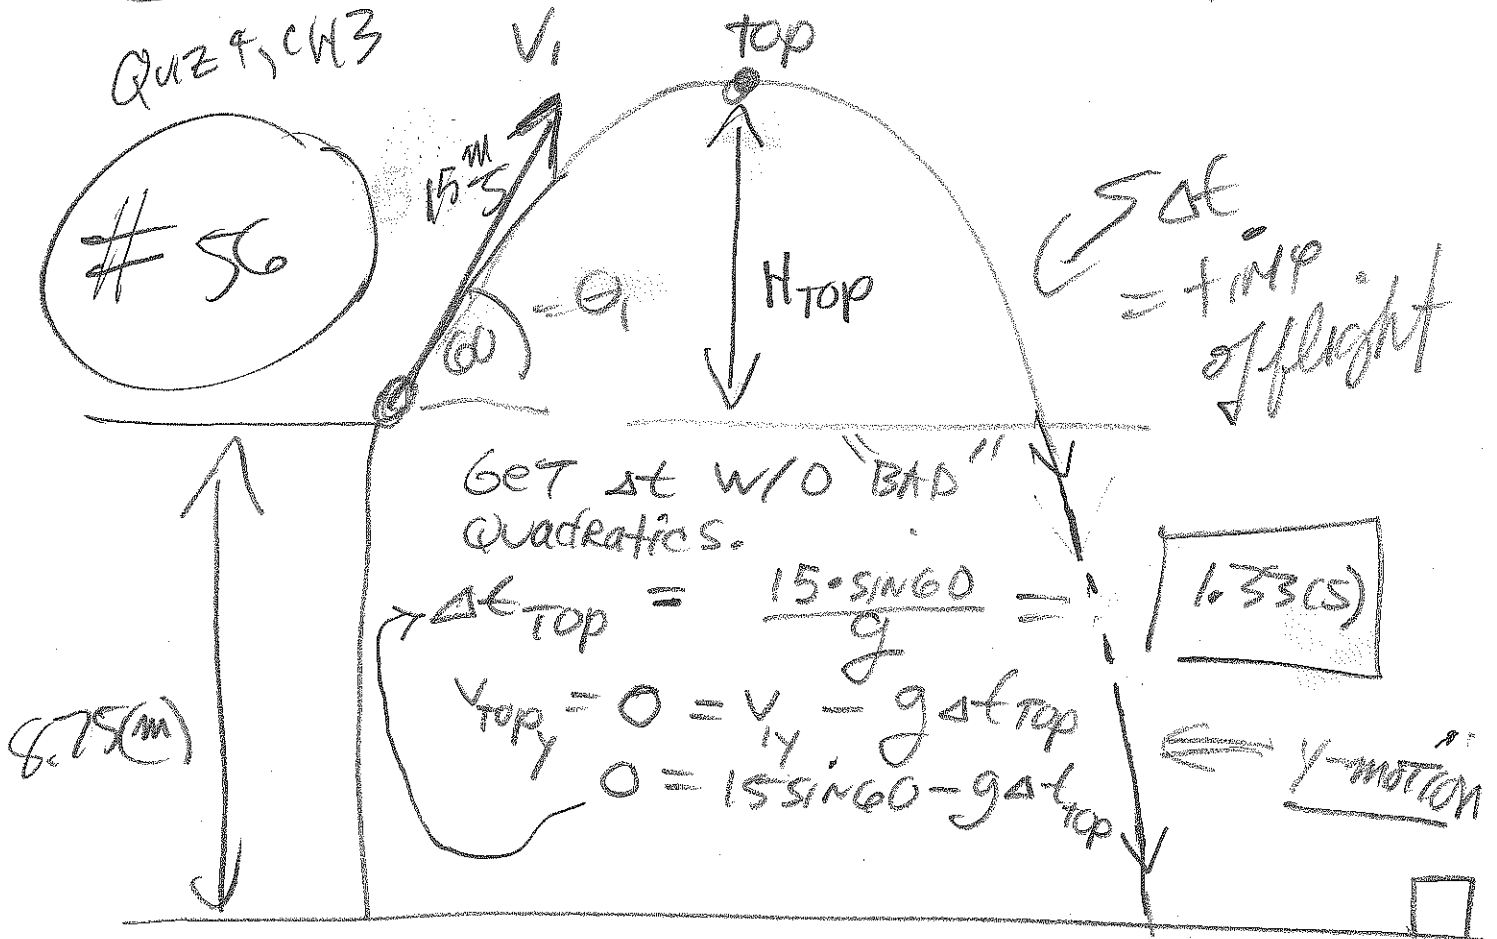 Quiz 4, CH3
# 56
V₁
TOP
15 m/s
60 = θ₁
H_TOP
Δt
= time
of flight
8.75(m)
GET Δt W/O "BAD"
Quadratics.
Δt_TOP = 15·sin60/g = 1.33(s)
V_TOPy = 0 = V₁y − gΔt_TOP
0 = 15sin60 − gΔt_top
⇐ y-motion